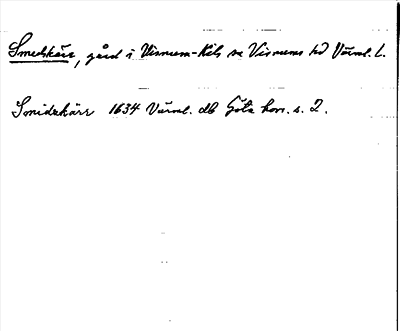 Smedskärr, gård i Visnum-Kils sn Visnums hd Värml. l.
Smidzkärr 1634 Värml. db Göta hovr. s. 2.